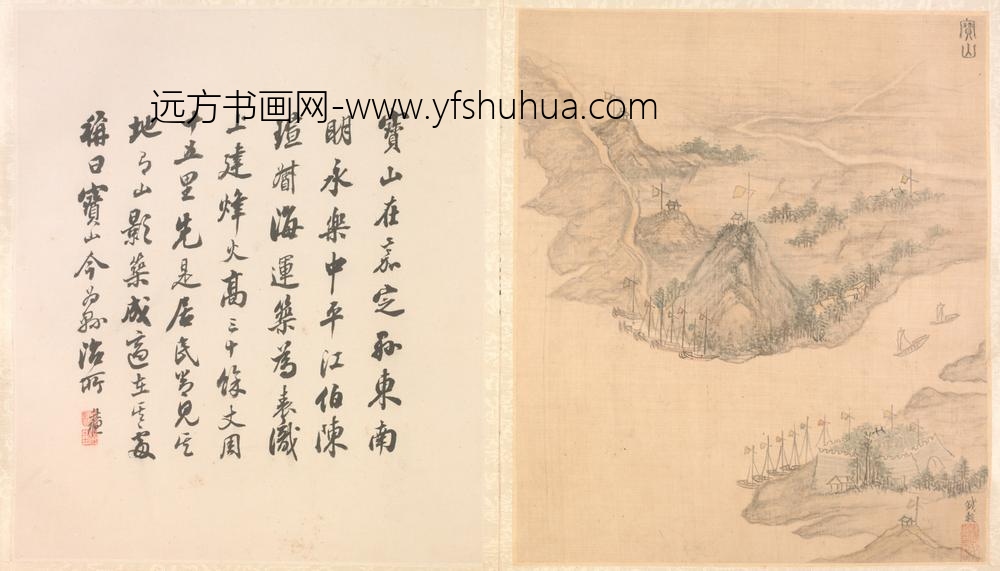 远方书画网-www.yfshuhua.com
寶山在嘉定縣東南
明永樂中平江伯陳
瑄督海運築為表識
上建烽火高三十餘丈周
十五里先是居民嘗見其
地有山影築成適在其處
稱曰寶山今為縣治所
寶山
錢穀